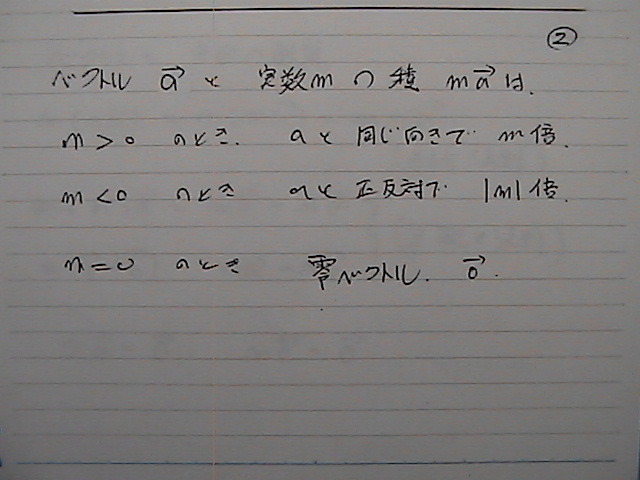 ②
ベクトル a→ と 実数m の 積 ma→ は.
m>0 のとき. aと 同じ向きで m倍.
m<0 のとき aと 正反対で |m|倍.
m=0 のとき 零ベクトル. 0→.